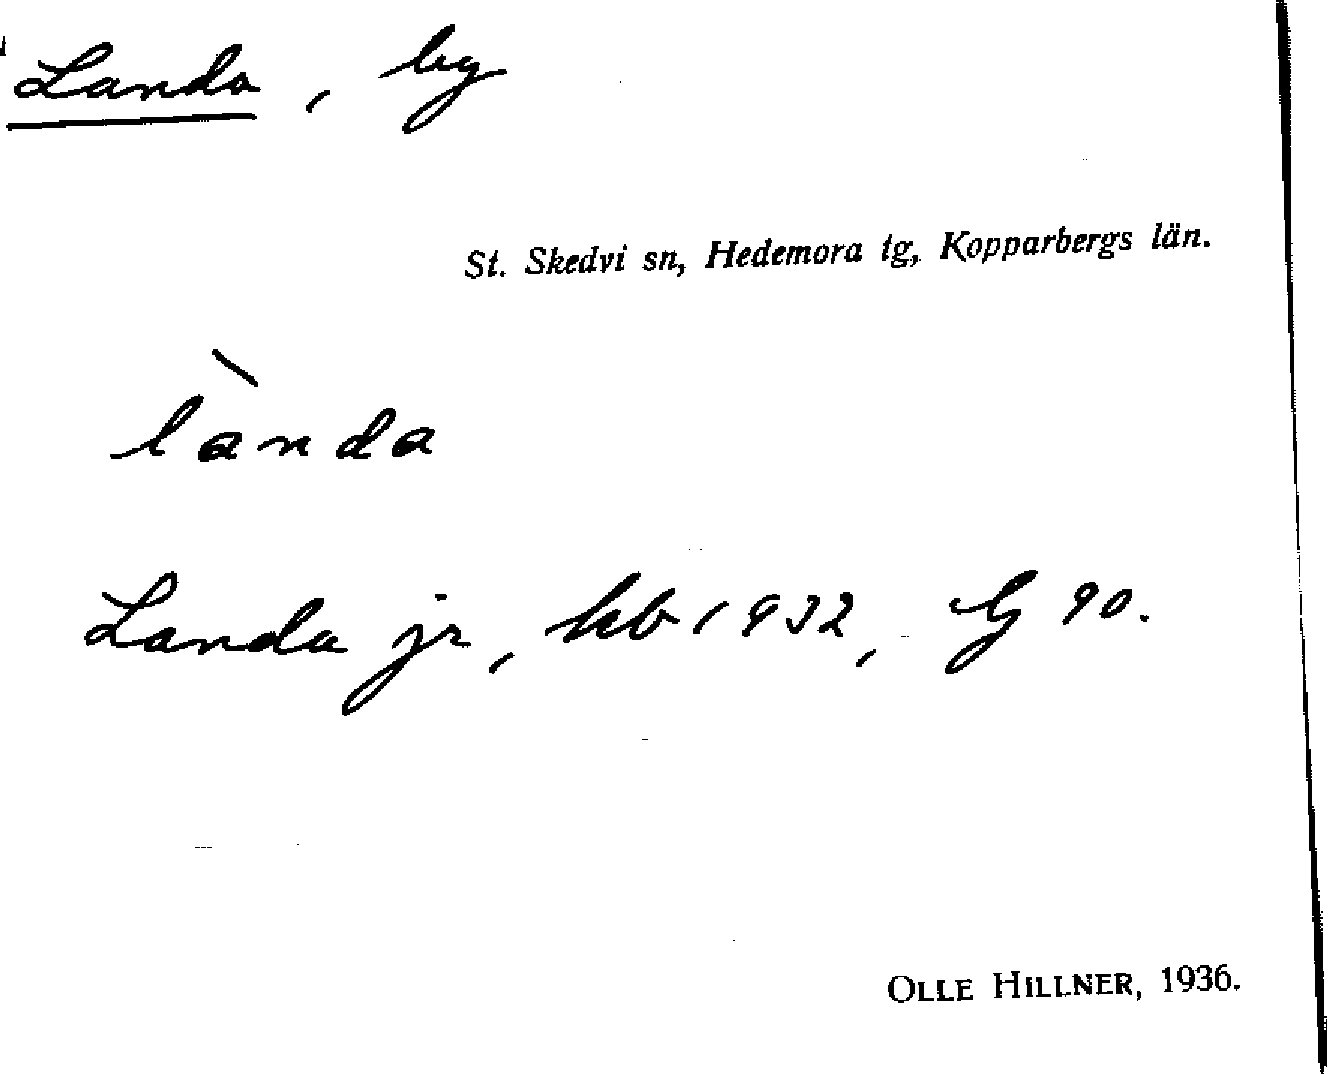 Landa, by
St. Skedvi sn, Hedemora tg, Kopparbergs län.
lànda
Landa jr, kb 1932, lg 90.
OLLE HILLNER, 1936.